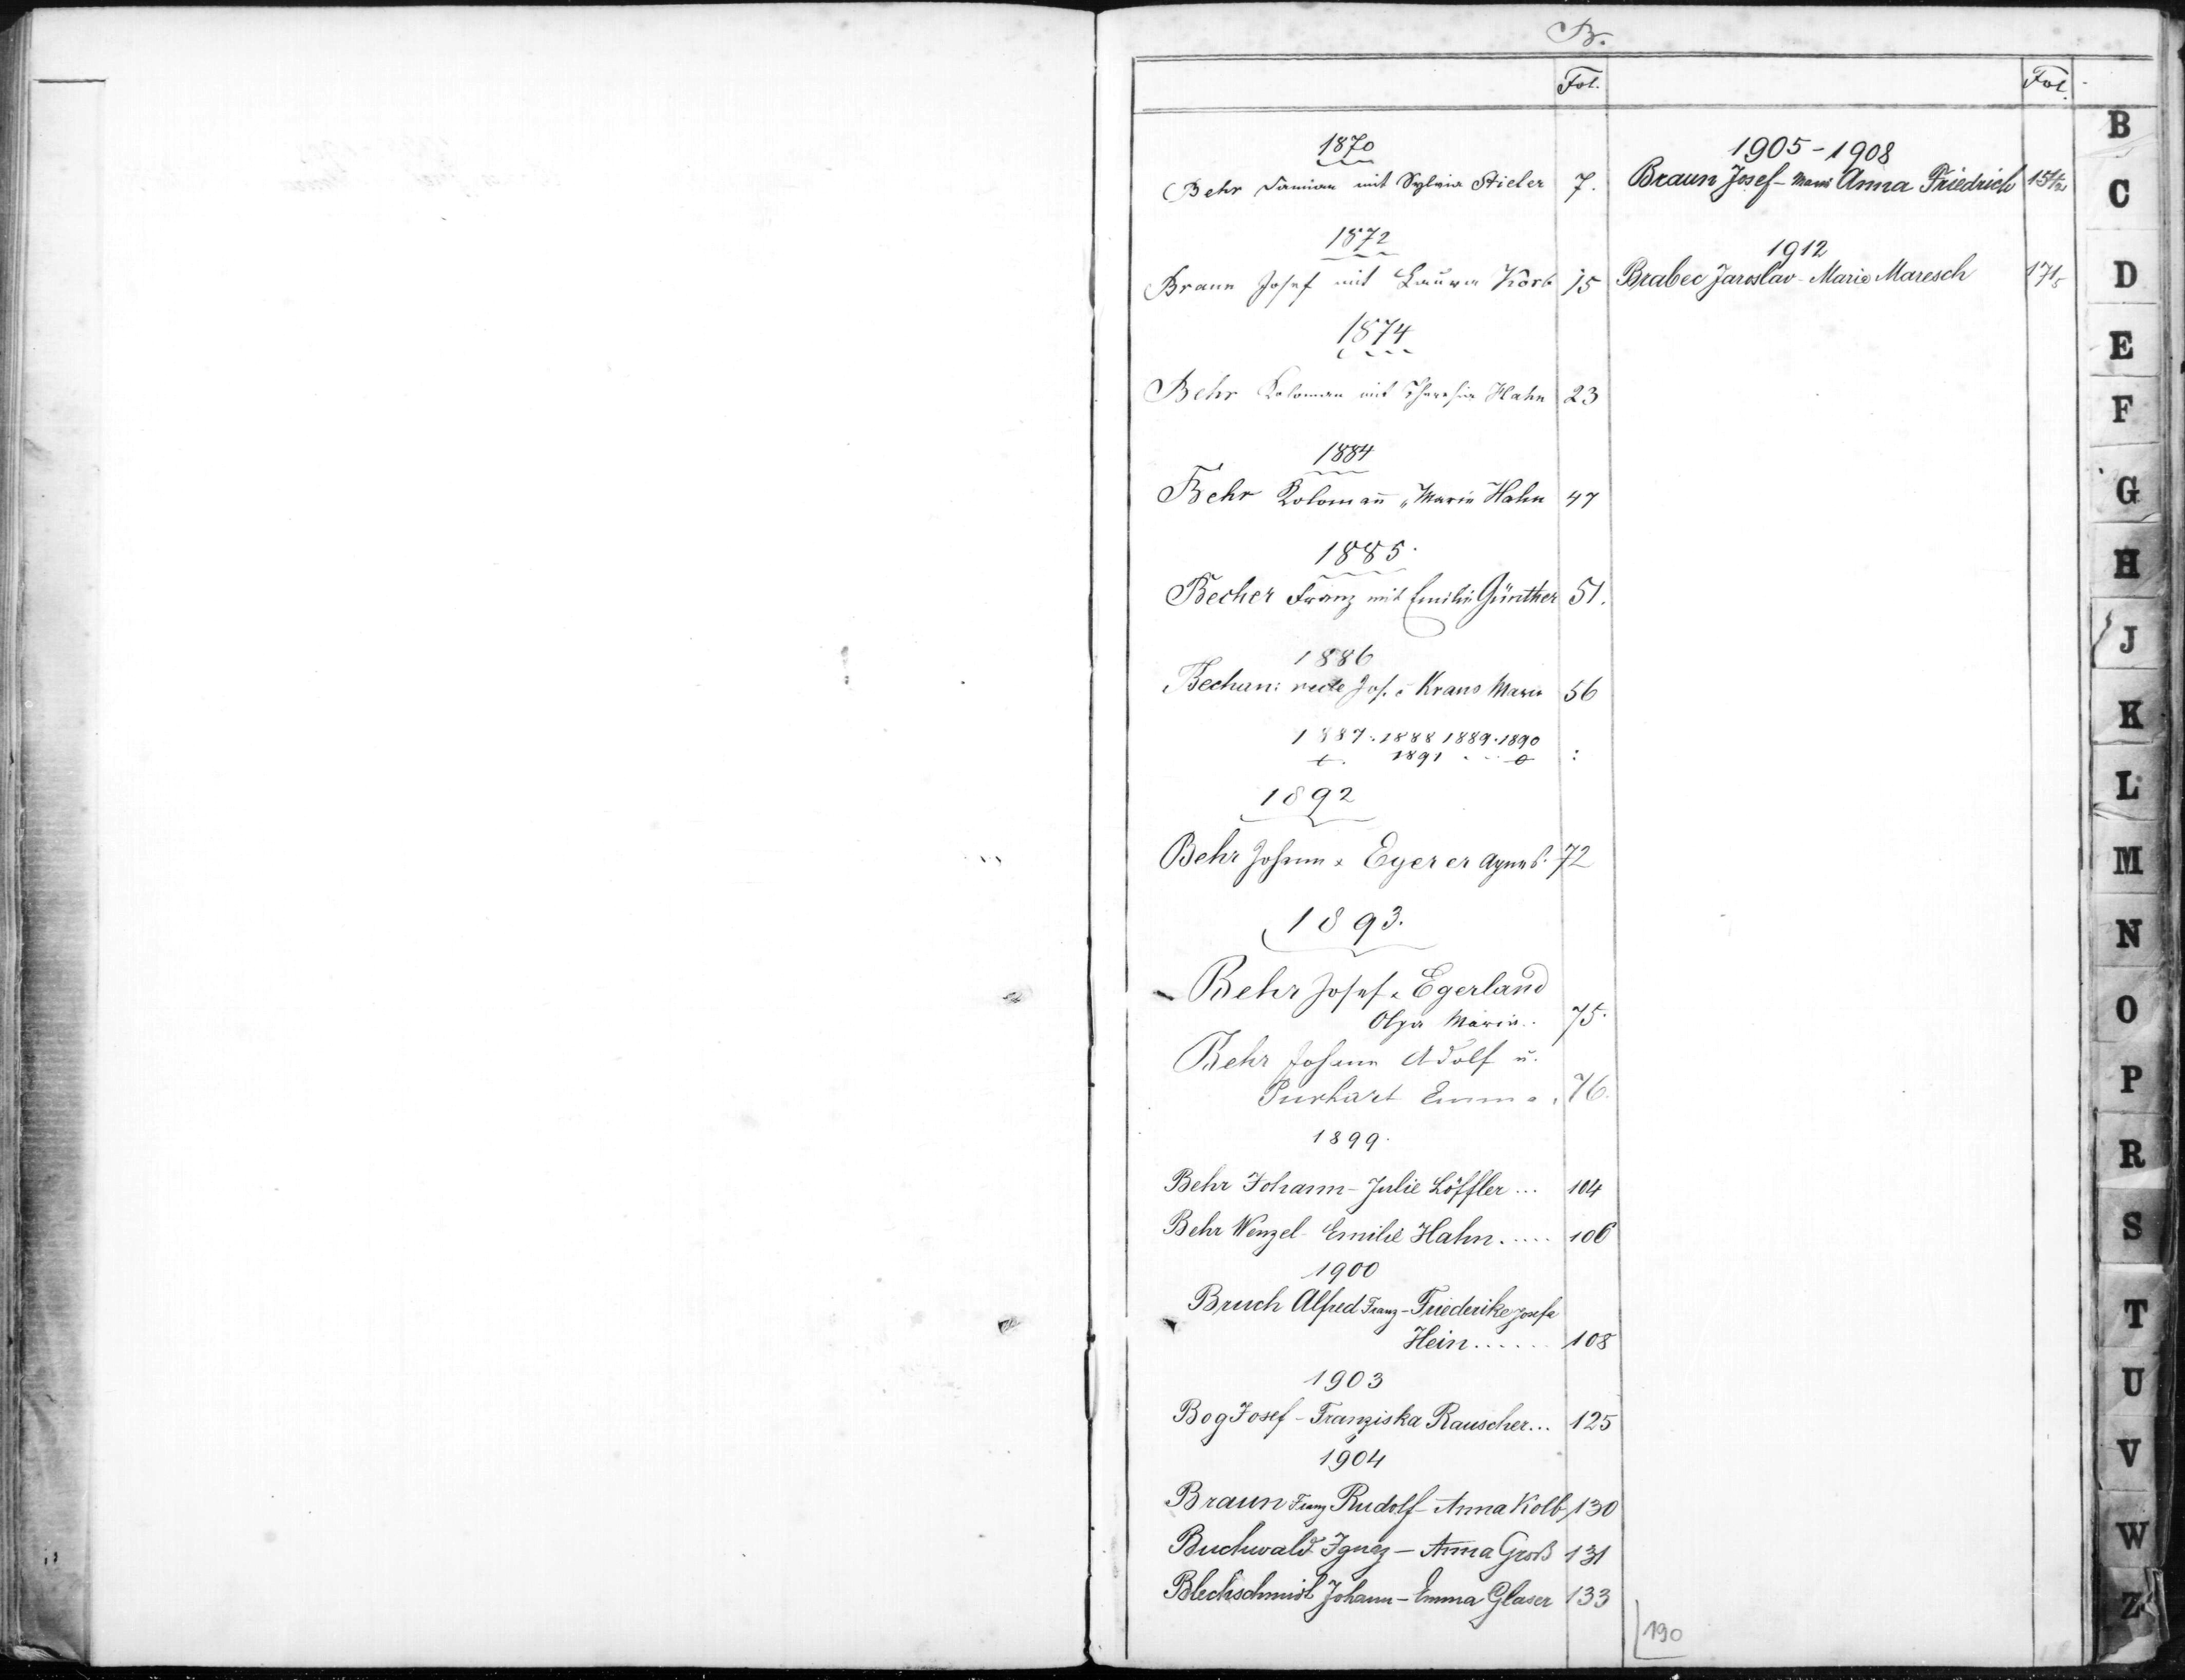 B.
Fol.
1870
Behr Damian mit Sylvia Stieler 7.
1872
Braun Josef mit Laura Körb 15
1874
Behr Koloman mit Theresia Hahn 23
1884
Behr Koloman̄ „ Marie Hahn 47
1885.
Becher Franz mit Emilie Günther 51.
1886
Jos. Kraus Marie 56
1887. 1888 1889. 1890
1891
1892
Behr Johann & Egerer Agnes. 72
1893.
Behr Josef & Egerland
Olga Maria.. 75.
Behr Johann Adolf u.
Purkart Emma. 76.
1899.
Behr Johann - Julie Löffler ... 104
Behr Wenzel - Emilie Hahn ..... 106
1900
Bruch Alfred Franz - Friederike Josefa
Hein ...... 108
1903
Bog Josef - Franziska Rauscher... 125
1904
Braun Franz Rudolf - Anna Kolb 130
Buchwald Ignaz - Anna Groß 131
Blechschmidt Johann - Emma Glaser 133
Fol.
1905 - 1908
Braun Josef - Marie Anna Friedrich
1912
Brabec Jaroslav - Marie Maresch
190
B
C
D
E
F
G
H
J
K
L
M
N
O
P
R
S
T
U
V
W
Z